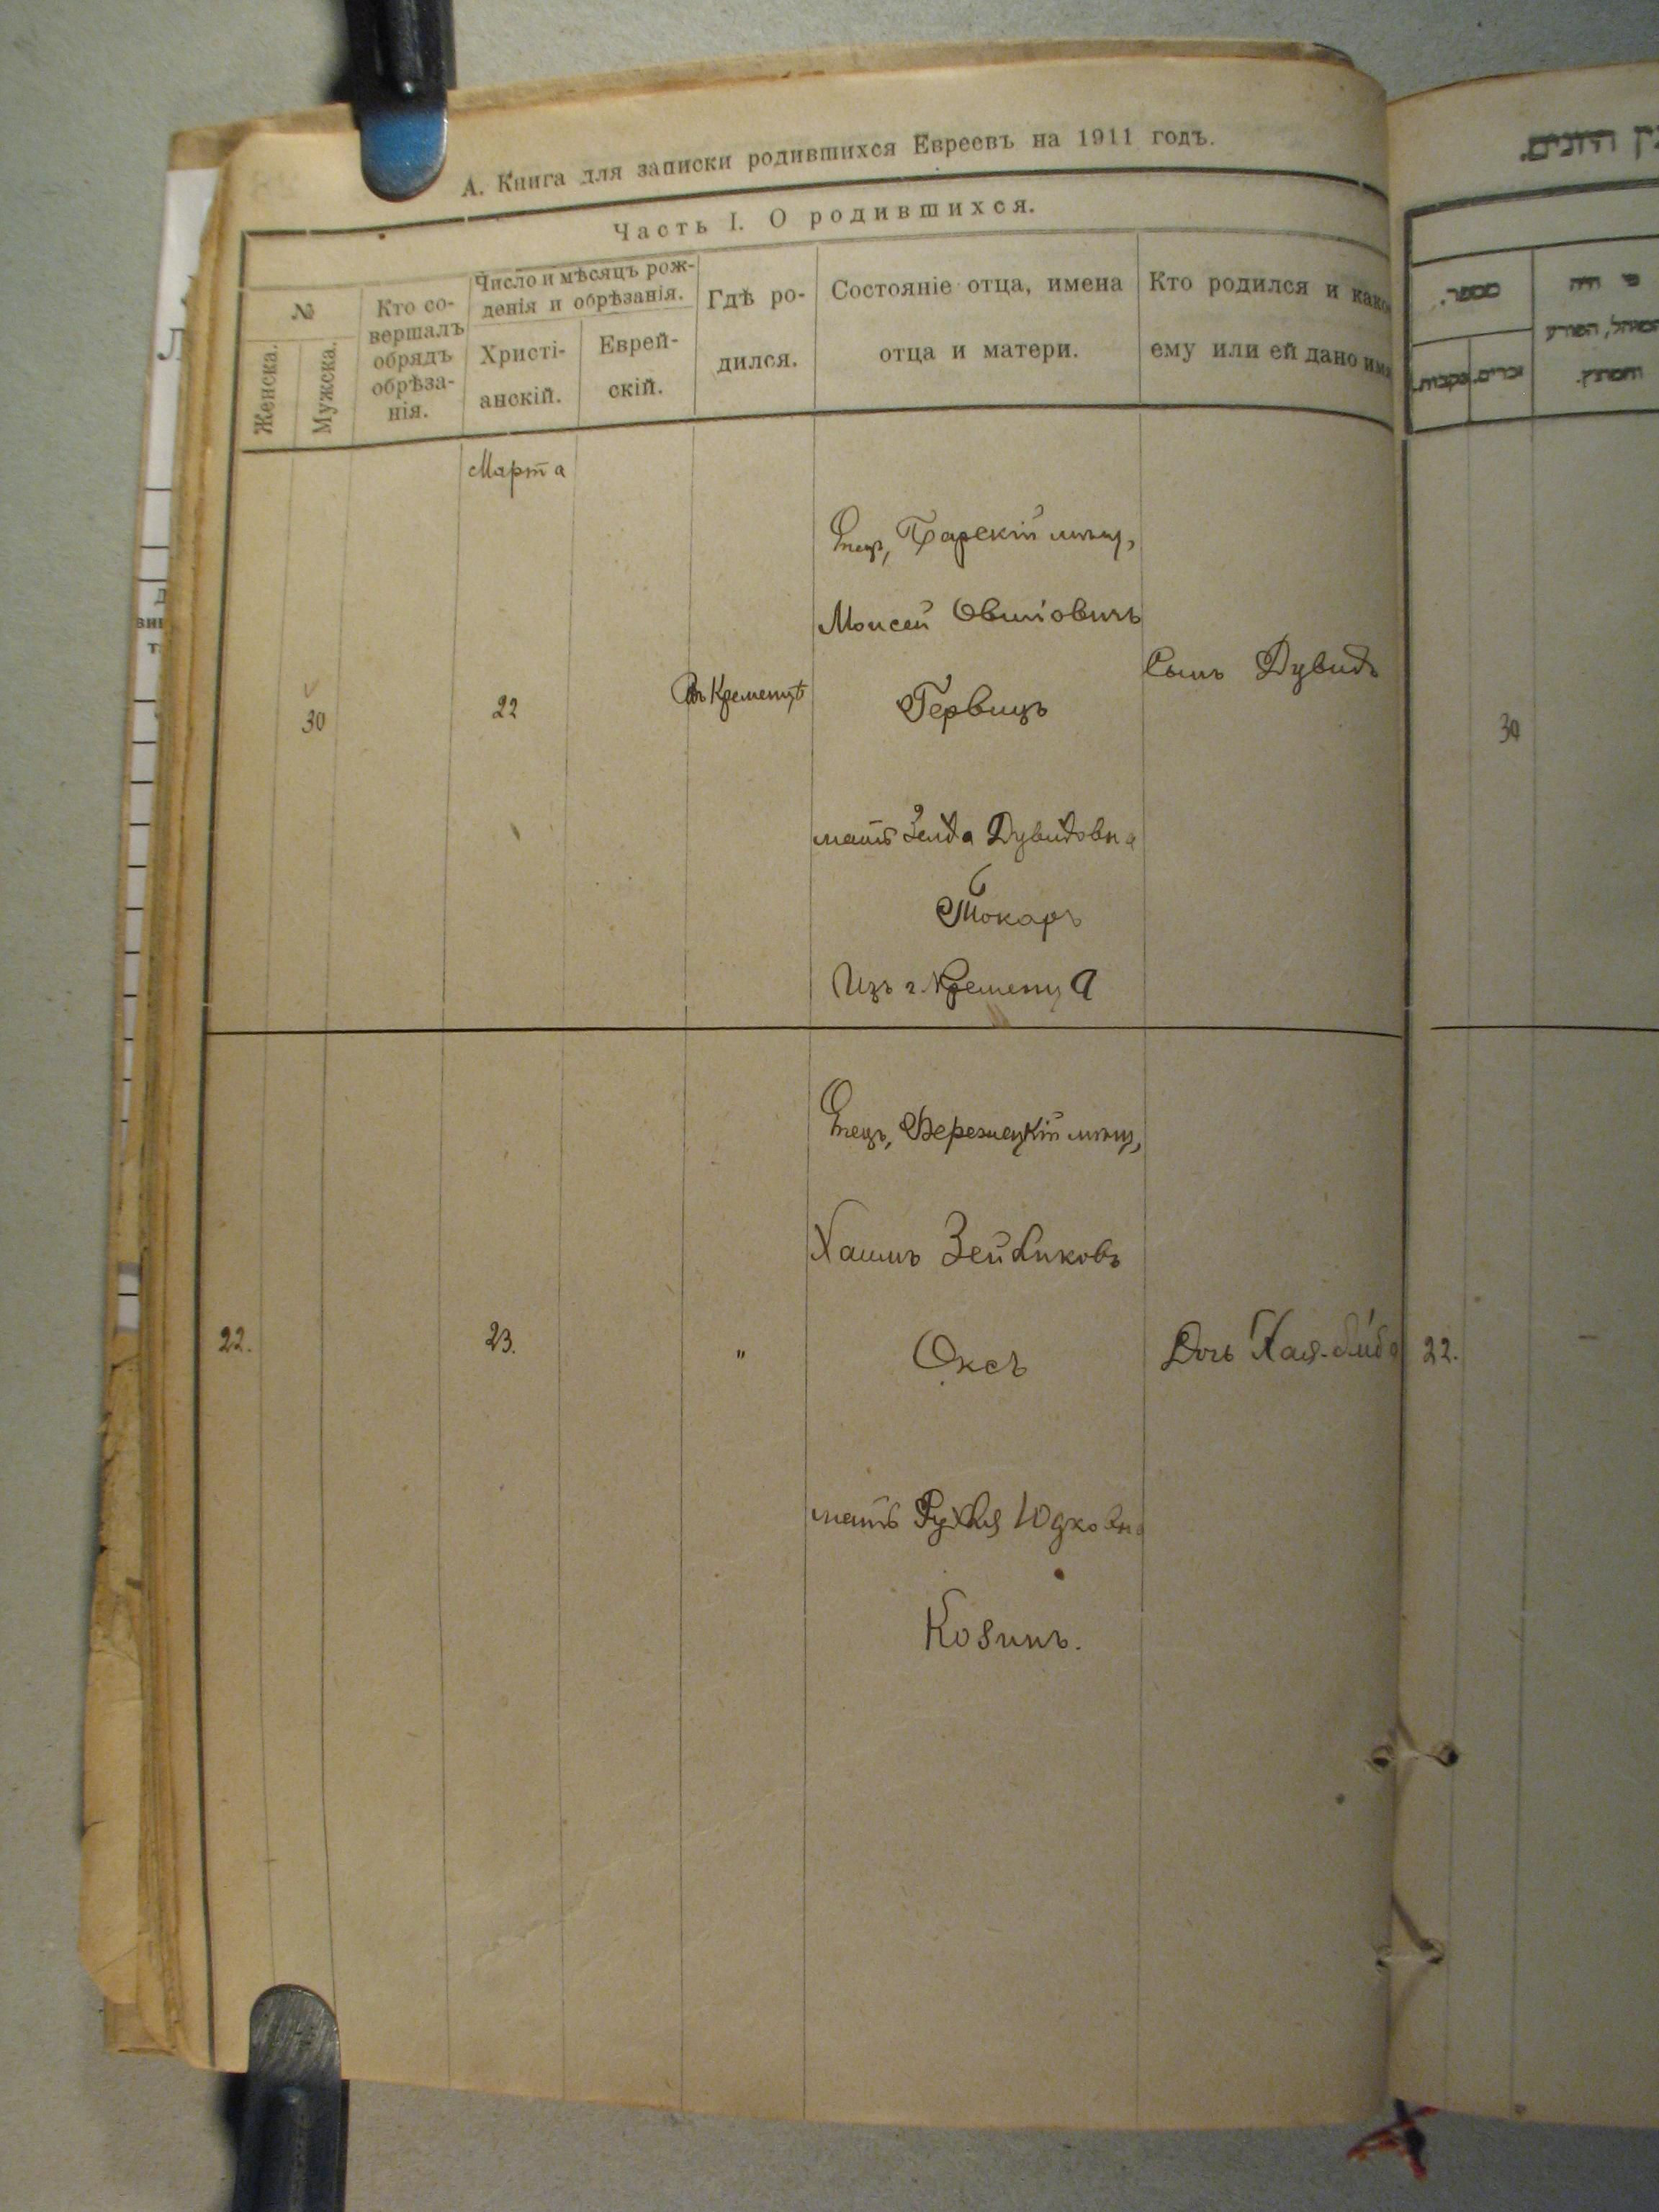 А. Книга для записки родившихся Евреевъ на 1911 годъ.
Часть I. О родившихся.
№
Женска.
Мужска.
Кто со-
вершалъ
обрядъ
обрѣза-
нія.
Число и мѣсяцъ рож-
денія и обрѣзанія.
Христі-
анскій.
Еврей-
скій.
Гдѣ ро-
дился.
Состояніе отца, имена
отца и матери.
Кто родился и како
ему или ей дано имя
Марта
30
22
Въ Кременцѣ
Отецъ, Барскій мѣщ,
Моисей Овшіовичъ
Гервицъ
мать Зелда Дувидовна
Токаръ
Изъ г. Кременца
Сынъ Дувидъ
22.
23.
"
Отецъ, Бережецкій мѣщ,
Хаимъ Зейликовъ
Оксъ
мать Рухля Юдковна
Козинъ.
Дочь Хая
מספר.
זכרים.
נקבות.
30
22.